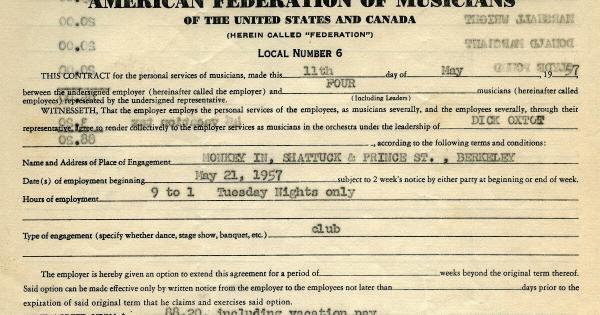 AMERICAN FEDERATION OF MUSICIANS
OF THE UNITED STATES AND CANADA
(HEREIN CALLED "FEDERATION")
LOCAL NUMBER 6
THIS CONTRACT for the personal services of musicians, made this 11th day of May, 1957
between the undersigned employer (hereinafter called the employer) and FOUR musicians (hereinafter called
(Including Leaders)
employees) represented by the undersigned representative.
WITNESSETH, That the employer employs the personal services of the employees, as musicians severally, and the employees severally, through their
representative, agree to render collectively to the employer services as musicians in the orchestra under the leadership of DICK OXTOT
, according to the following terms and conditions:
Name and Address of Place of Engagement MONKEY IN, SHATTUCK & PRINCE ST. , BERKELEY
Date(s) of employment beginning May 21, 1957 subject to 2 week's notice by either party at beginning or end of week.
Hours of employment 9 to 1 Tuesday Nights only
Type of engagement (specify whether dance, stage show, banquet, etc.) club
The employer is hereby given an option to extend this agreement for a period of weeks beyond the original term thereof.
Said option can be made effective only by written notice from the employer to the employees not later than days prior to the
expiration of said original term that he claims and exercises said option.
88.20, including vacation pay